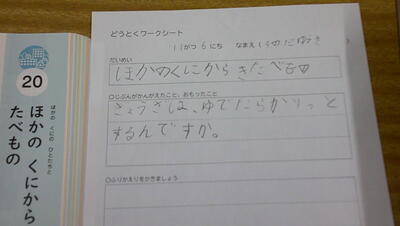 どうとくワークシート
11がつ6にち なまえ
だいめい
ほかのくにからきたべもの
○じぶんがかんがえたこと、おもったこと
きょうざは、ゆでたらかりっと
するんですか。
○ふりかえりをかきましょう
20
ほかの くにの ひとたちと
ほかの くにから
たべもの